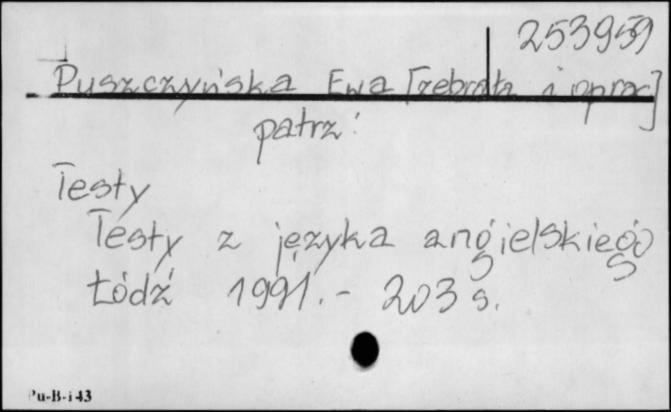 253959
Puszczyńska Ewa [zebrała i oprac]
patrz:
Testy
Testy z języka angielskiego
Łódź 1991. - 203 s.
Pu-B-i 43